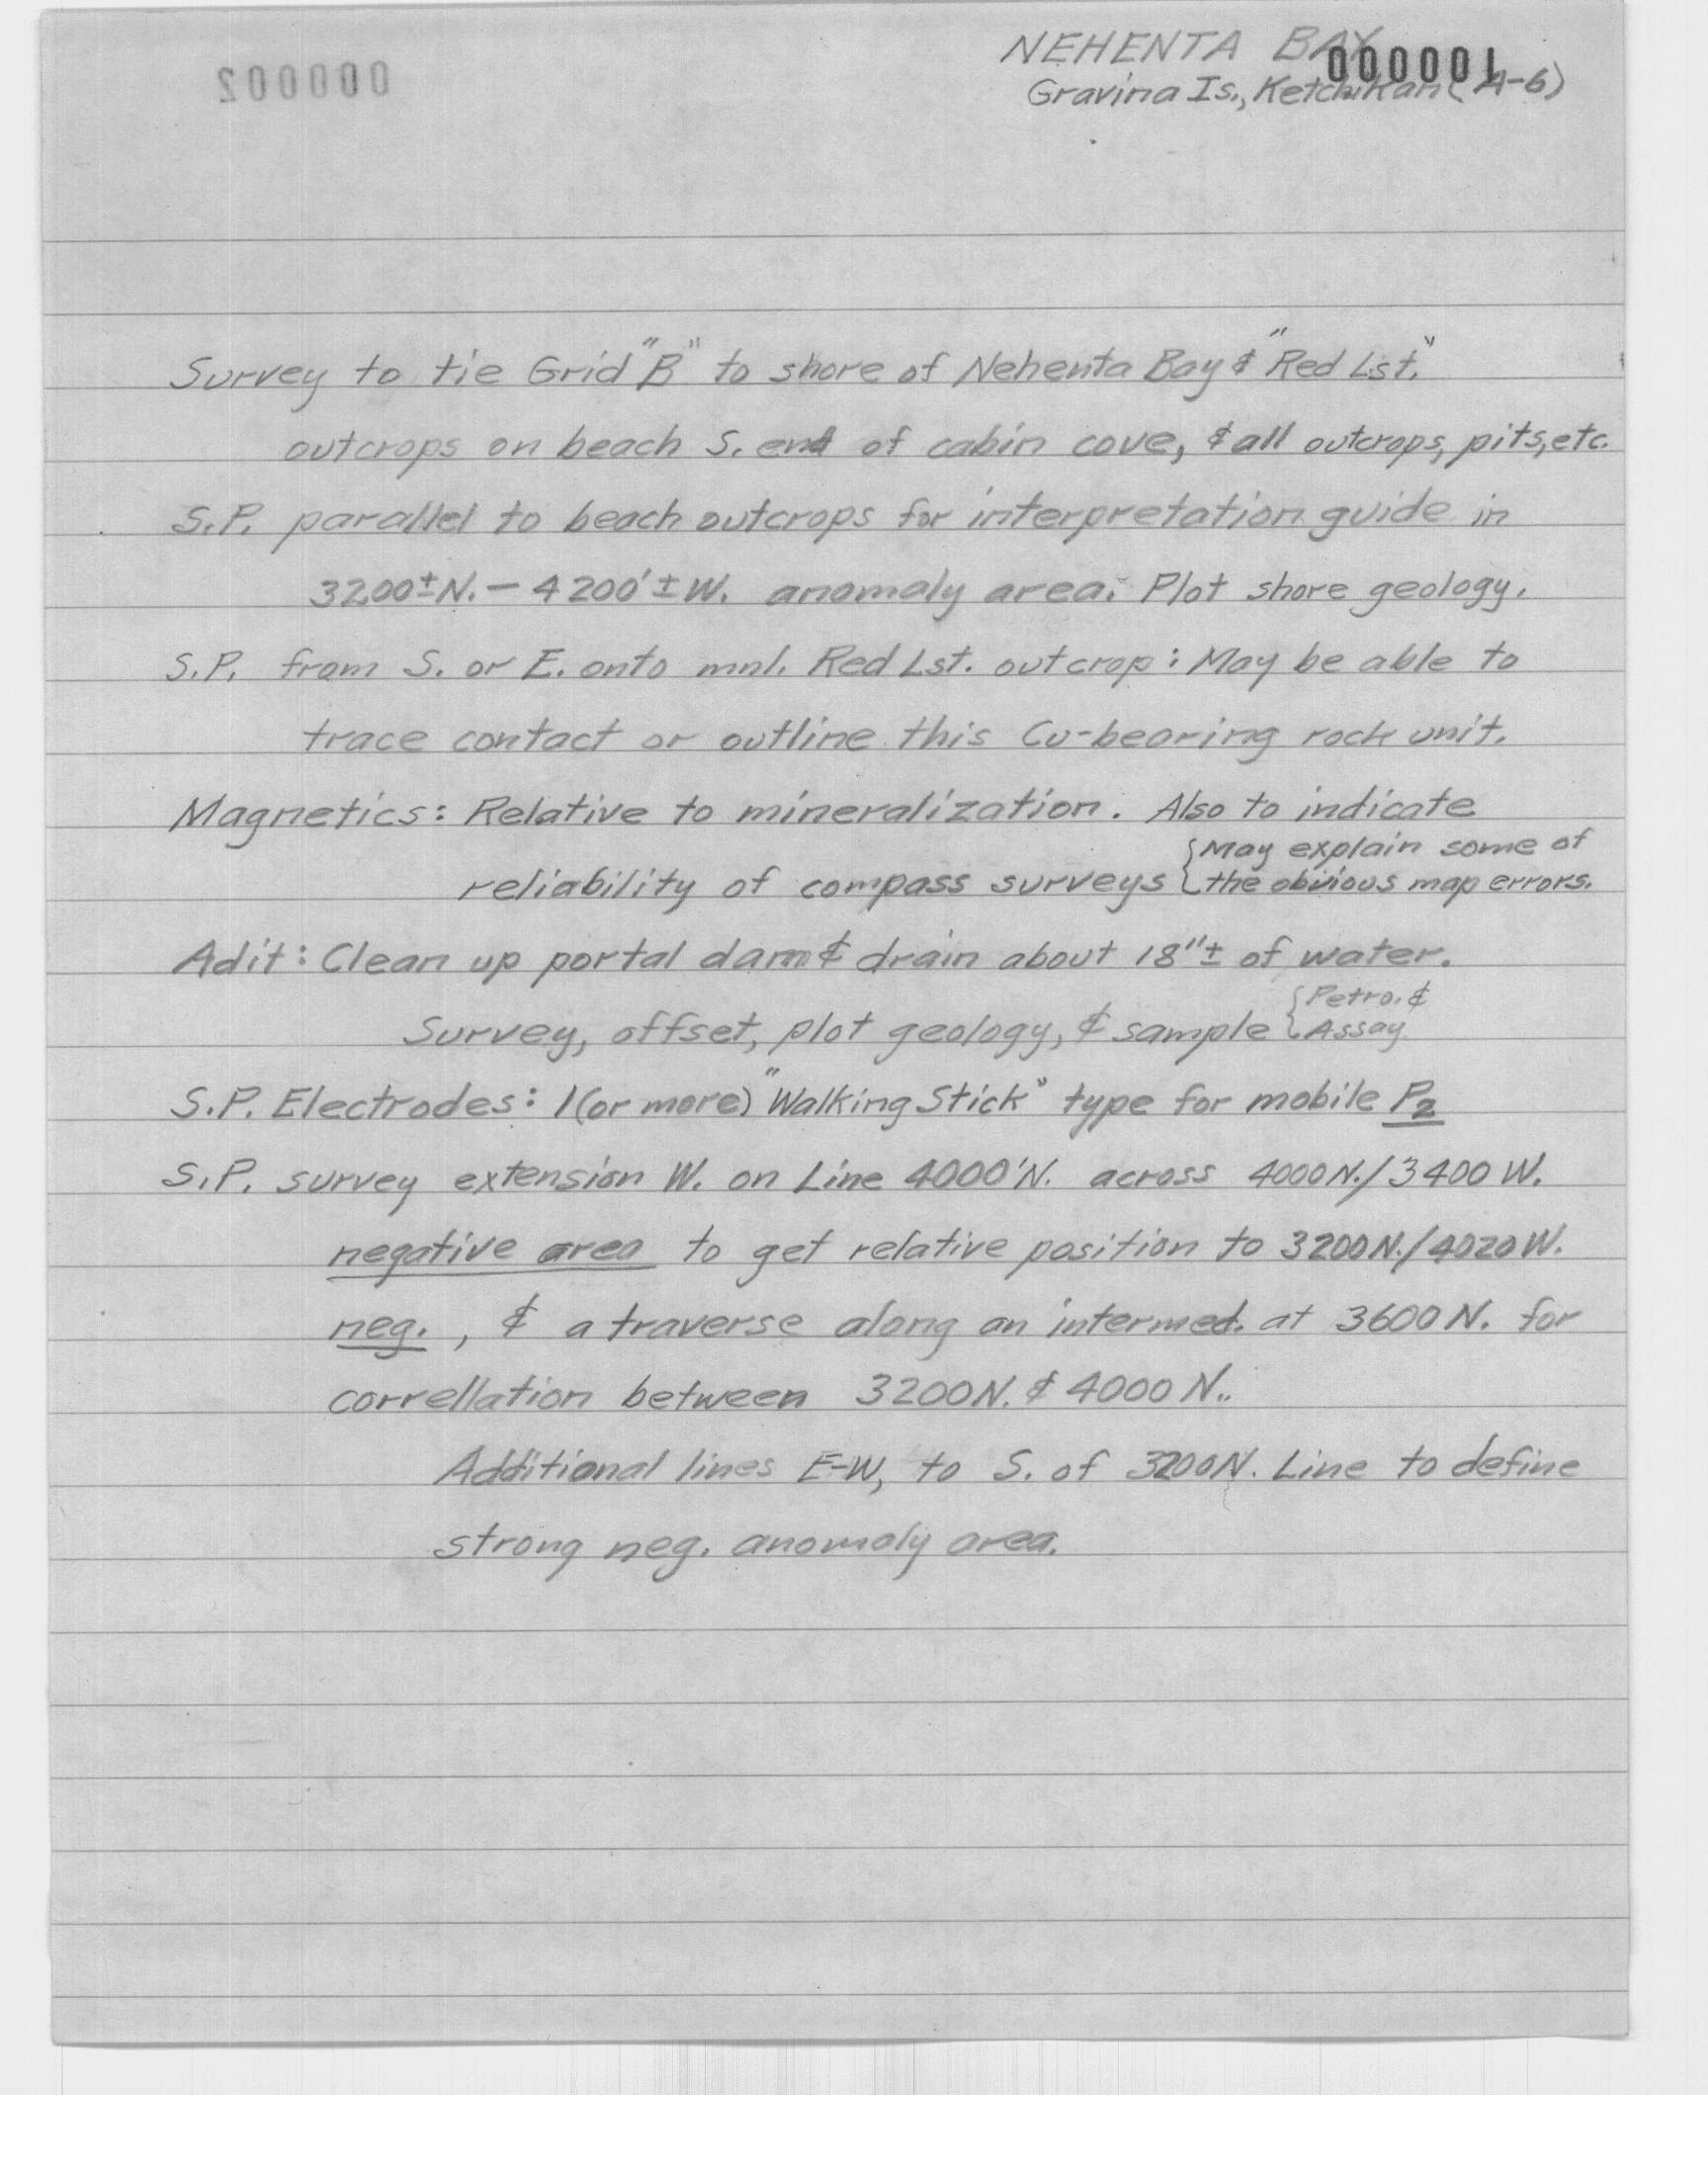 NEHENTA BAY
000001
Gravina Is., Ketchikan (A-6)
000002
Survey to tie Grid "B" to shore of Nehenta Bay & "Red Lst."
outcrops on beach S. end of cabin cove, & all outcrops, pits, etc.
S.P. parallel to beach outcrops for interpretation guide in
3200±N. - 4200'±W. anomaly area. Plot shore geology.
S.P. from S. or E. onto mnl. Red Lst. outcrop: May be able to
trace contact or outline this Cu-bearing rock unit.
Magnetics: Relative to mineralization. Also to indicate
reliability of compass surveys {May explain some of
the obvious map errors.
Adit: Clean up portal dam & drain about 18"± of water.
Survey, offset, plot geology, & sample {Petro. &
Assay.
S.P. Electrodes: 1 (or more) "Walking Stick" type for mobile P2
S.P. survey extension W. on Line 4000'N. across 4000N./3400 W.
negative area to get relative position to 3200N./4020W.
neg., & a traverse along an intermed. at 3600N. for
correllation between 3200N. & 4000N..
Additional lines E-W, to S. of 3200N. Line to define
strong neg. anomaly area.